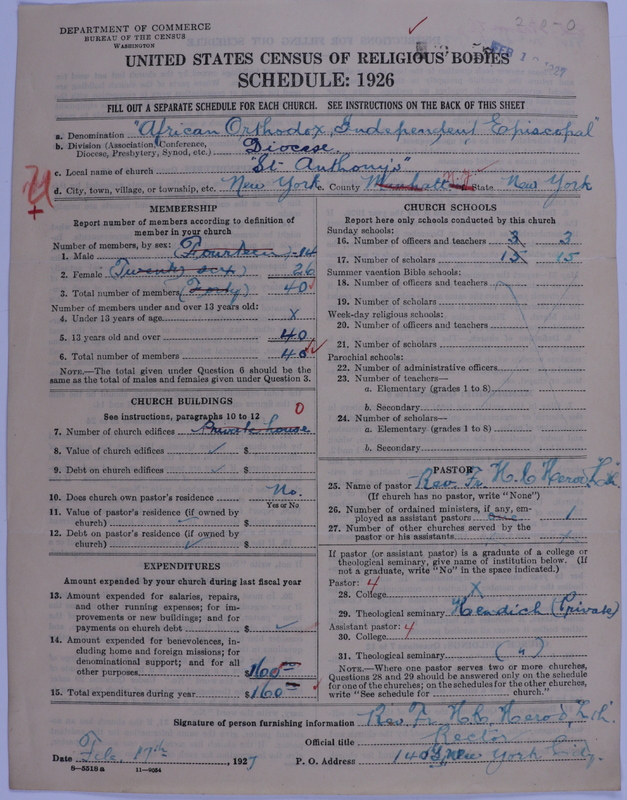 DEPARTMENT OF COMMERCE
BUREAU OF THE CENSUS
WASHINGTON
FEB 1 1927
UNITED STATES CENSUS OF RELIGIOUS BODIES
SCHEDULE: 1926
FILL OUT A SEPARATE SCHEDULE FOR EACH CHURCH. SEE INSTRUCTIONS ON THE BACK OF THIS SHEET
a. Denomination "African Orthodox, Independent Episcopal"
b. Division (Association, Conference, Diocese, Presbytery, Synod, etc.) Diocese.
c. Local name of church "St Anthony's"
d. City, town, village, or township, etc. New York e. County N.Y. State New York
MEMBERSHIP
Report number of members according to definition of member in your church
Number of members, by sex:
1. Male (Fourteen) 14
2. Female (Twenty six) 26
3. Total number of members (Forty) 40
Number of members under and over 13 years old:
4. Under 13 years of age X
5. 13 years old and over 40
6. Total number of members 40
NOTE.—The total given under Question 6 should be the same as the total of males and females given under Question 3.
CHURCH BUILDINGS
See instructions, paragraphs 10 to 12
7. Number of church edifices Private house 0
8. Value of church edifices $
9. Debt on church edifices $
10. Does church own pastor's residence No.
Yes or No
11. Value of pastor's residence (if owned by church) $
12. Debt on pastor's residence (if owned by church) $
EXPENDITURES
Amount expended by your church during last fiscal year
13. Amount expended for salaries, repairs, and other running expenses; for improvements or new buildings; and for payments on church debt $
14. Amount expended for benevolences, including home and foreign missions; for denominational support; and for all other purposes $160
15. Total expenditures during year $160
CHURCH SCHOOLS
Report here only schools conducted by this church
Sunday schools:
16. Number of officers and teachers 3 3
17. Number of scholars 15 15
Summer vacation Bible schools:
18. Number of officers and teachers
19. Number of scholars
Week-day religious schools:
20. Number of officers and teachers
21. Number of scholars
Parochial schools:
22. Number of administrative officers
23. Number of teachers—
a. Elementary (grades 1 to 8)
b. Secondary
24. Number of scholars—
a. Elementary (grades 1 to 8)
b. Secondary
PASTOR
25. Name of pastor Rev. Fr. H.C.
(If church has no pastor, write "None")
26. Number of ordained ministers, if any, employed as assistant pastors One 1
27. Number of other churches served by the pastor or his assistants
If pastor (or assistant pastor) is a graduate of a college or theological seminary, give name of institution below. (If not a graduate, write "No" in the space indicated.)
Pastor: 4
28. College X
29. Theological seminary (Private)
Assistant pastor: 4
30. College
31. Theological seminary
NOTE.—Where one pastor serves two or more churches, Questions 28 and 29 should be answered only on the schedule for one of the churches; on the schedules for the other churches, write "See schedule for church."
Signature of person furnishing information Rev. Fr.
Official title Rector
Date Feb. 17th, 1927 P. O. Address New York City.
8—5518 a 11—9084